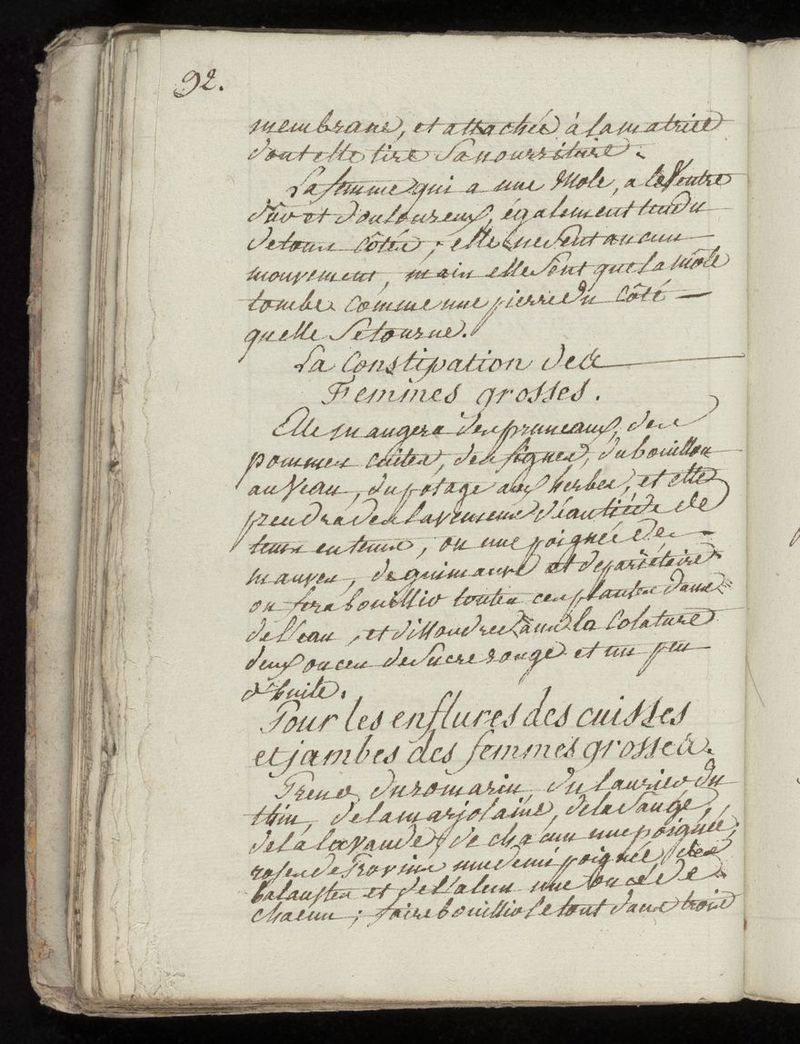 92.
membrane, et attachée à la matrice
dont elle tire sa nourriture.
La femme qui a une Mole, a le Ventre
dur et douloureux, également tendu
de tous côtés ; elle ne sent aucun
mouvement, mais elle sent que la môle
tombe comme une pierre du côté
quelle se tourne.
La Constipation des
Femmes grosses.
Elle mangera des pruneaux, des
pommes cuites, des figues, du bouillon
au Veau, du potage aux herbes, et elle
prendra des lavemens d'eau tiéde de
tems en tems, ou une poignée de
mauves, de guimauve et de parïétaire
on fera bouillir toutes ces plantes dans
de l'eau, et dissoudre dans la Colature
deux onces de Sucre rouge et un peu
d'huile.
Pour les enflures des cuisses
et jambes des femmes grosses.
Prenez du romarin, du laurier du
thin, de la marjolaine, de la Sauge,
de la lavande, de chacun une poignée,
roses de Provins une demi poignée, des
balaustes et de l'alun une once de
chacun ; faire bouillir le tout dans trois